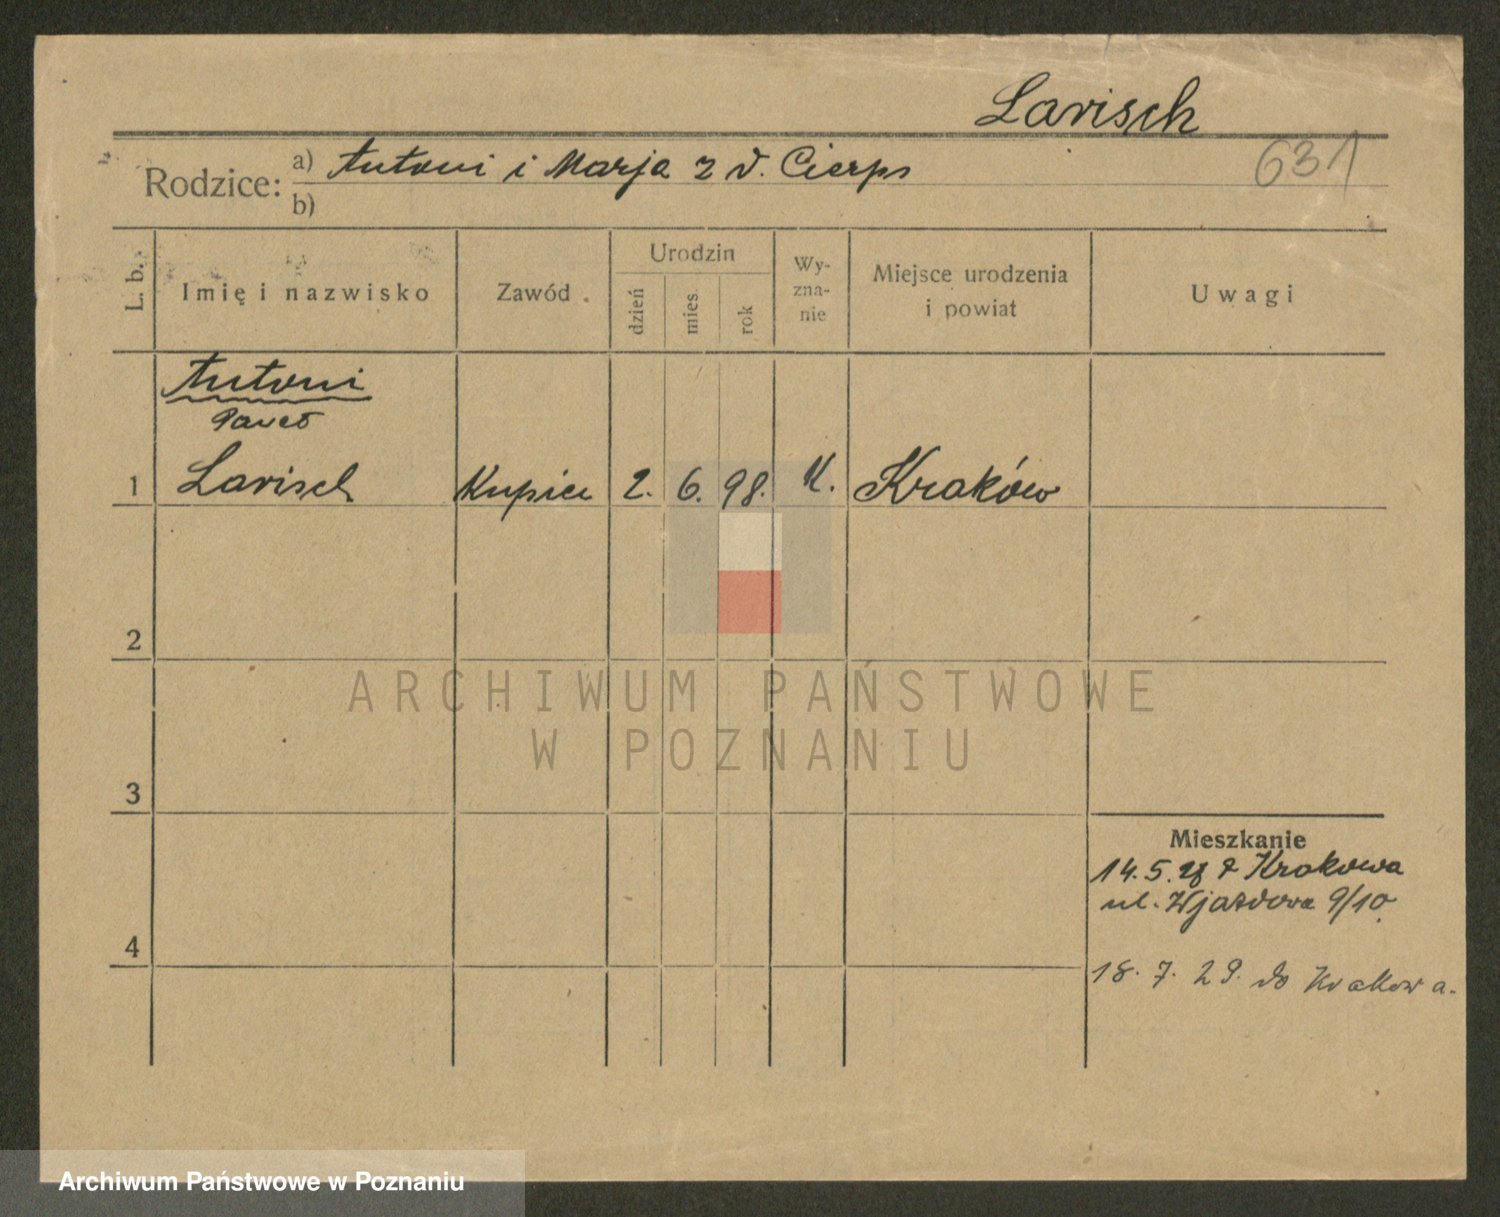 Larisch
631
Rodzice: a) Antoni i Marja z d. Cierps
b)
L. b. Imię i nazwisko Zawód Urodzin dzień mies. rok Wy-zna-nie Miejsce urodzenia i powiat Uwagi
Antoni
Paweł
1 Larisch Kupiec 2. 6. 98. K. Kraków
2
ARCHIWUM PAŃSTWOWE
W POZNANIU
3
Mieszkanie
14.5.28 z Krakowa
ul. Wjazdowa 9/10
4
18. 7. 29. do Krakowa.
Archiwum Państwowe w Poznaniu